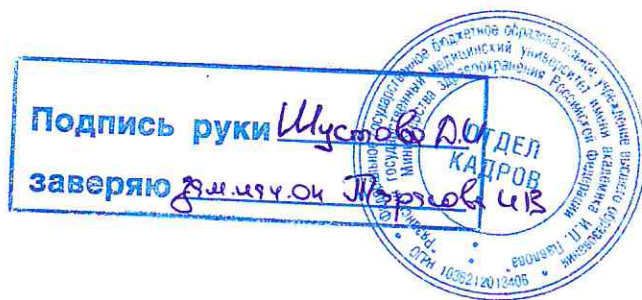 Подпись руки Шустова Д.И
заверяю зам.нач.ок
ОТДЕЛ
КАДРОВ
государственное бюджетное образовательное учреждение высшего образования
государственный медицинский университет имени академика И.П. Павлова"
Министерства здравоохранения Российской Федерации
ОГРН